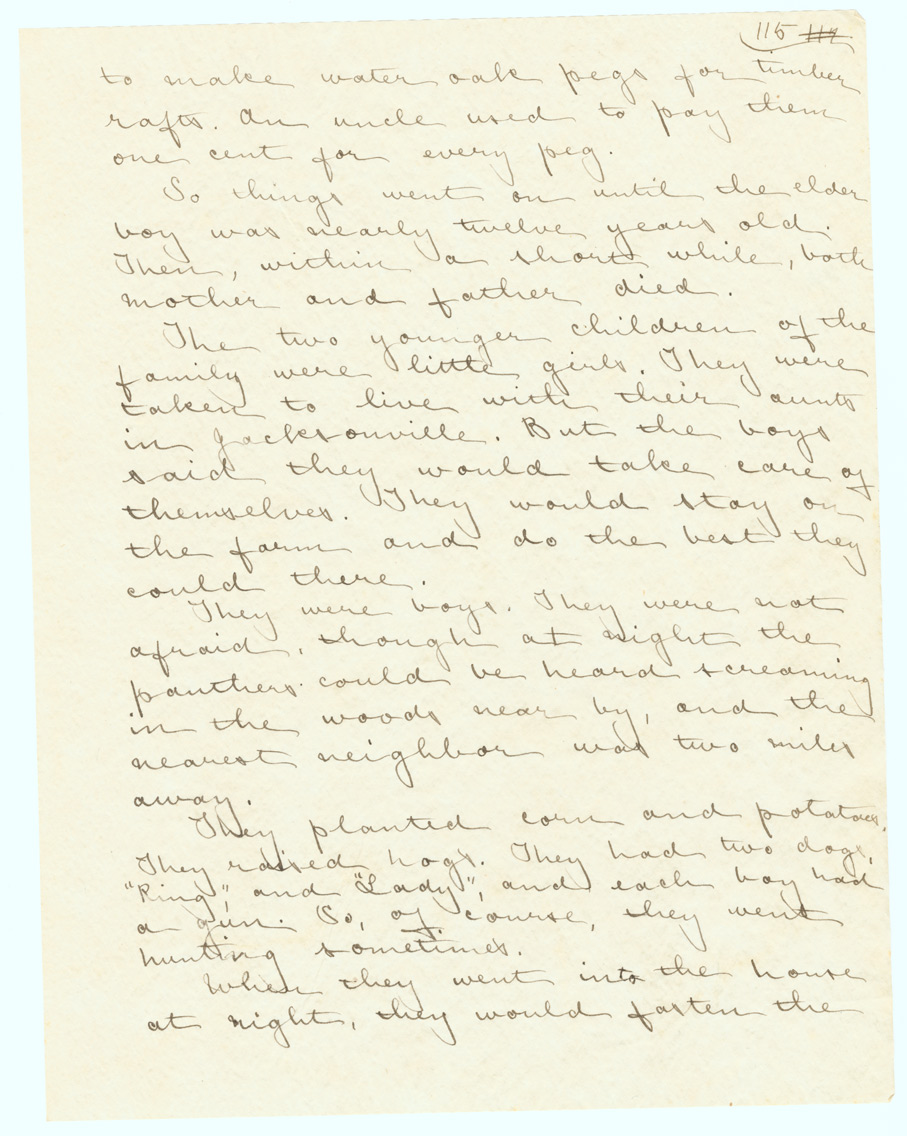 115 112
to make water oak pegs for timber
rafts. An uncle used to pay them
one cent for every peg.
So things went on until the elder
boy was nearly twelve years old.
Then, within a short while, both
mother and father died.
The two younger children of the
family were little girls. They were
taken to live with their aunts
in Jacksonville. But the boys
said they would take care of
themselves. They would stay on
the farm and do the best they
could there.
They were boys. They were not
afraid, though at night the
panthers could be heard screaming
in the woods near by, and the
nearest neighbor was two miles
away.
They planted corn and potatoes.
They raised hogs. They had two dogs,
"Ring", and "Lady", and each boy had
a gun. So, of course, they went
hunting sometimes.
When they went into the house
at night, they would fasten the